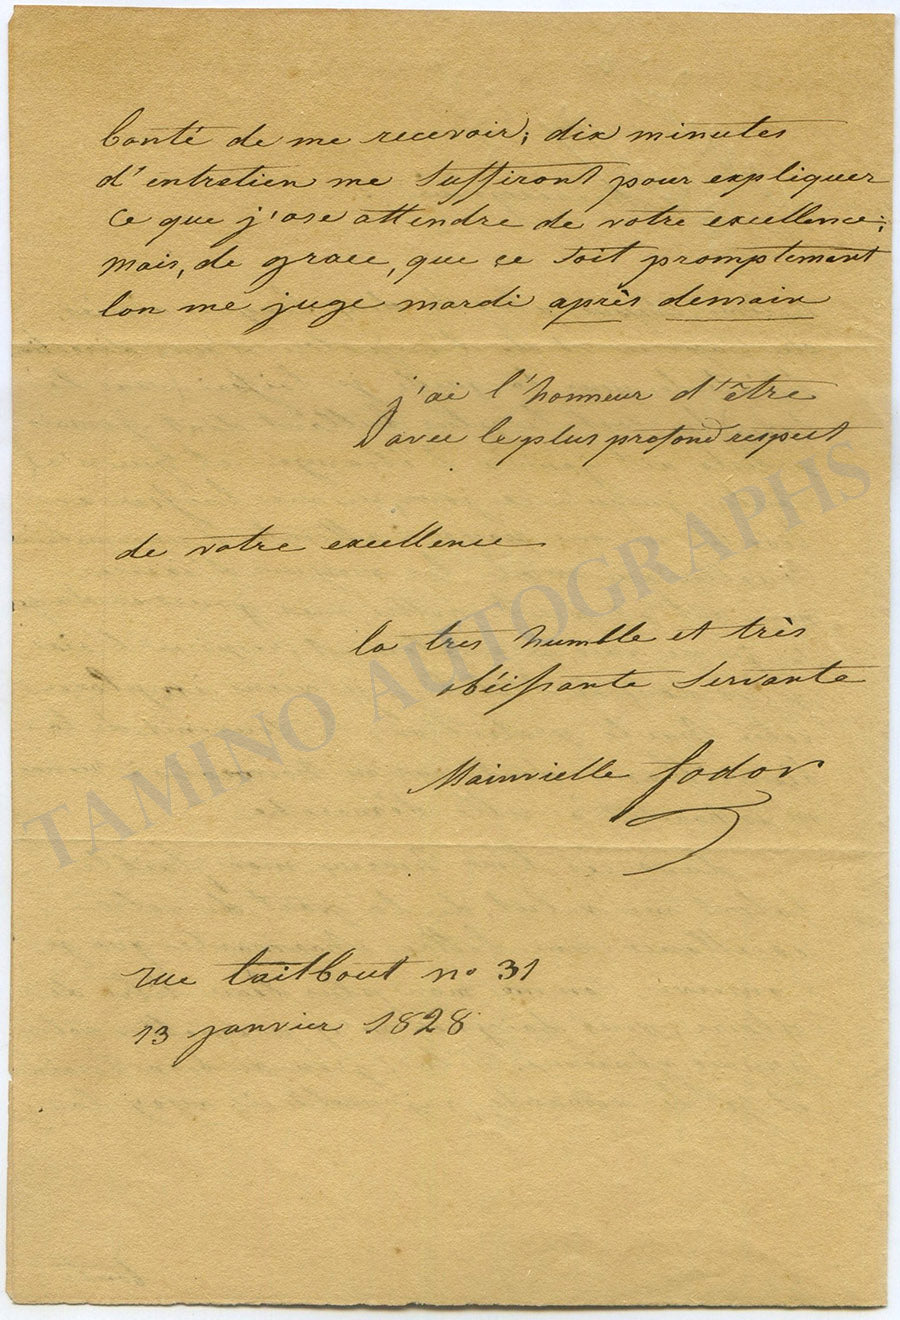 bonté de me recevoir; dix minutes
d'entretien me suffiront pour expliquer
ce que j'ose attendre de votre excellence;
mais, de grace, que ce soit promptement
lon me juge mardi après demain
j'ai l'honneur d'être
avec le plus profond respect
de votre excellence
la tres humble et très
obéissante servante
Mainvielle fodor
rue taitbout no 31
13 janvier 1828
TAMINO AUTOGRAPHS